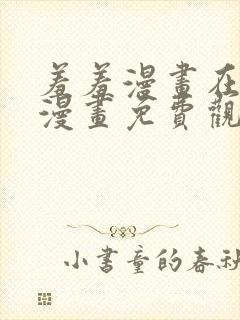 羞羞漫畫在
漫畫免費觀
小書童的春秋